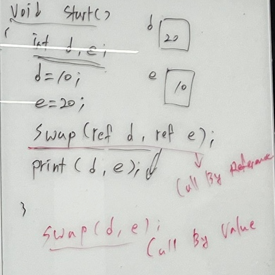 void start()
{
int d,e;
d=10;
e=20;
swap(ref d, ref e);
print(d,e);
}
d 20
e 10
Call By Reference
swap(d,e);
Call By Value